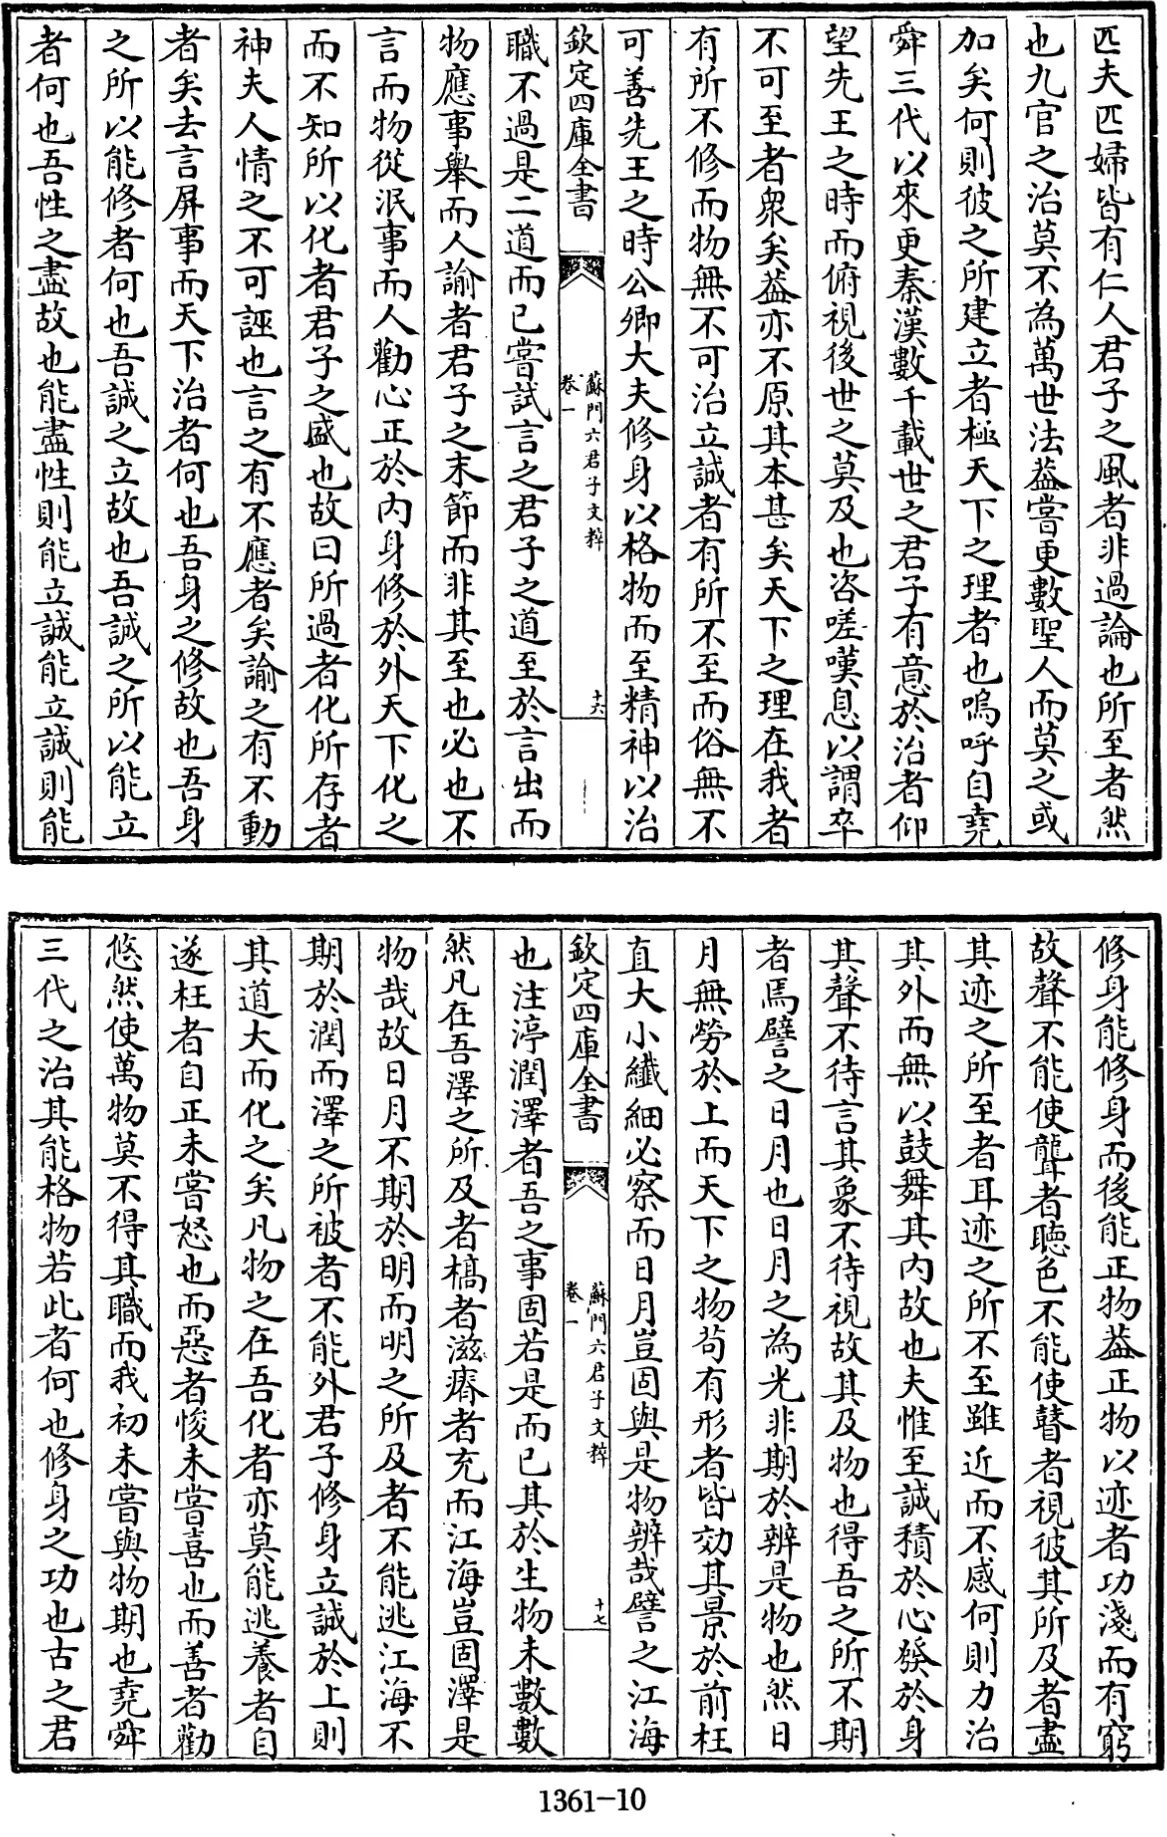 匹夫匹婦皆有仁人君子之風者非過論也所至者然
也九官之治莫不為萬世法葢嘗更數聖人而莫之或
加矣何則彼之所建立者極天下之理者也嗚呼自堯
舜三代以來更秦漢數千載世之君子有意於治者仰
望先王之時而俯視後世之莫及也咨嗟嘆息以謂卒
不可至者衆矣葢亦不原其本甚矣天下之理在我者
有所不修而物無不可治立誠者有所不至而俗無不
可善先王之時公卿大夫修身以格物而至精神以治
欽定四庫全書
蘇門六君子文粹
卷一
十六
職不過是二道而已嘗試言之君子之道至於言出而
物應事舉而人諭者君子之末節而非其至也必也不
言而物從泯事而人勸心正於内身修於外天下化之
而不知所以化者君子之盛也故曰所過者化所存者
神夫人情之不可誣也言之有不應者矣諭之有不動
者矣去言屏事而天下治者何也吾身之修故也吾身
之所以能修者何也吾誠之立故也吾誠之所以能立
者何也吾性之盡故也能盡性則能立誠能立誠則能
修身能修身而後能正物葢正物以迹者功淺而有窮
故聲不能使聾者聽色不能使瞽者視彼其所及者盡
其迹之所至者耳迹之所不至雖近而不感何則力治
其外而無以鼓舞其内故也夫惟至誠積於心發於身
其聲不待言其象不待視故其及物也得吾之所不期
者焉譬之日月也日月之為光非期於辨是物也然日
月無勞於上而天下之物苟有形者皆効其景於前枉
直大小纎細必察而日月豈固與是物辨哉譬之江海
欽定四庫全書
蘇門六君子文粹
卷一
十七
也注渟潤澤者吾之事固若是而已其於生物未數數
然凡在吾澤之所及者槁者滋瘠者充而江海豈固澤是
物哉故日月不期於明而明之所及者不能逃江海不
期於潤而澤之所被者不能外君子修身立誠於上則
其道大而化之矣凡物之在吾化者亦莫能逃養者自
遂枉者自正未嘗怒也而惡者悛未嘗喜也而善者勸
悠然使萬物莫不得其職而我初未嘗與物期也堯舜
三代之治其能格物若此者何也修身之功也古之君
1361-10